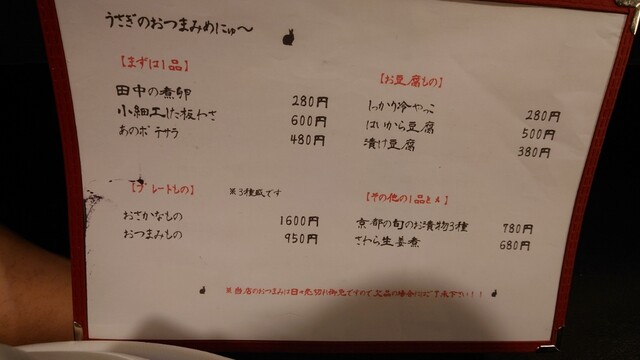 うさぎのおつまみめにゅ〜
【まずは1品】
田中の煮卵 280円
小細工した板わさ 600円
あのポテサラ 480円
【お豆腐もの】
しっかり冷やっこ 280円
はいから豆腐 500円
漬け豆腐 380円
【プレートもの】 ※3種盛です
おさかなもの 1600円
おつまみもの 950円
【その他の1品
京都の旬のお漬物3種 780円
さわら生姜煮 680円
※当店のおつまみは日々売切れ御免ですので欠品の場合はご了承下さい!!